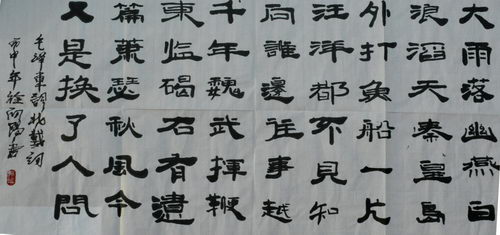 大雨落幽燕白
浪滔天秦皇島
外打魚船一片
汪洋都不見知
向誰邊往事越
千年魏武揮鞭
東临碣石有遺
篇蕭瑟秋風今
又是換了人間
毛澤東詞北戴河
丙申年徐向陽書